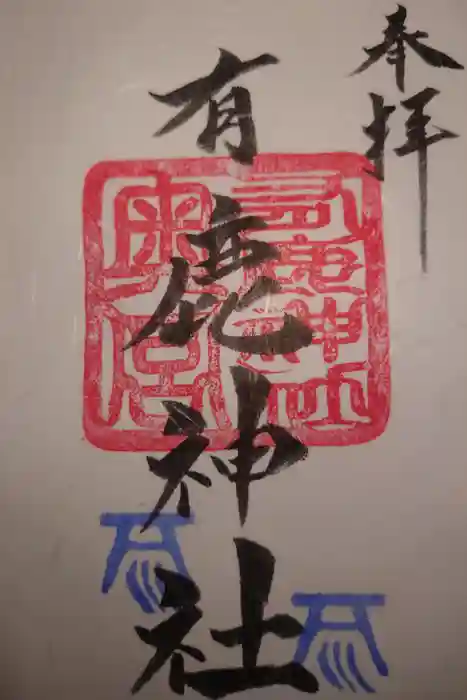 奉拝
有鹿神社